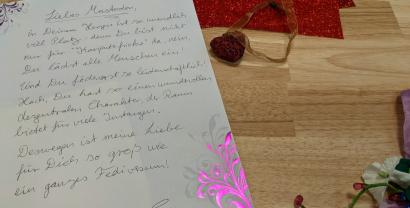 Liebes Mastodon,
in Deinem Herzen ist so unendlich
viel Platz, denn Du bist nicht
nur für "Computerfreaks" da, nein,
Du lädst alle Menschen ein!
Und Du föderierst so leidenschaftlich!
Hach, Du hast so einen wundervollen
dezentralen Charakter, der Raum
bietet für viele Instanzen.
Deswegen ist meine Liebe
für Dich so groß wie
ein ganzes Fediversum!